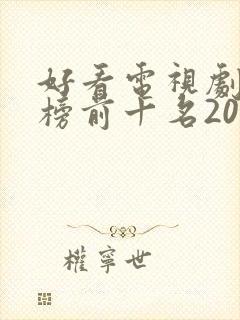 好看電視劇
榜前十名20
權寧世